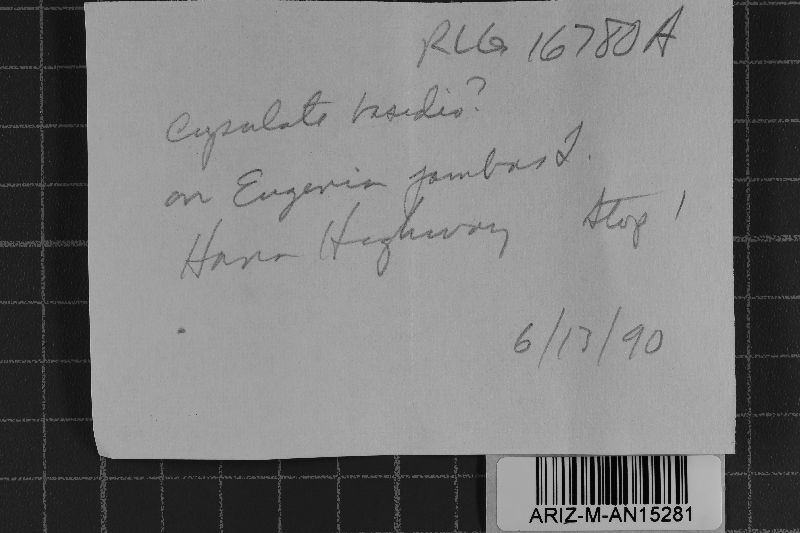 RLG 16780A
Cupulate basidio?
on Eugenia jambos L.
Hana Highway Stop 1
6/13/90
ARIZ-M-AN15281